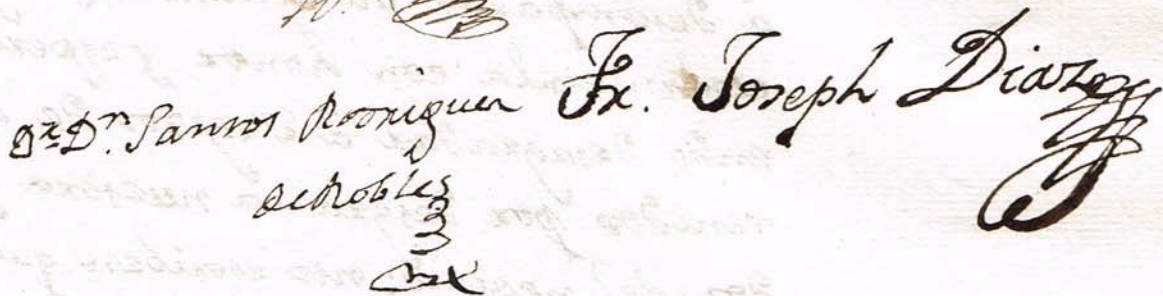 Dr. Dn. Santos Rodriguez
de Robles
Fr. Joseph Diaz